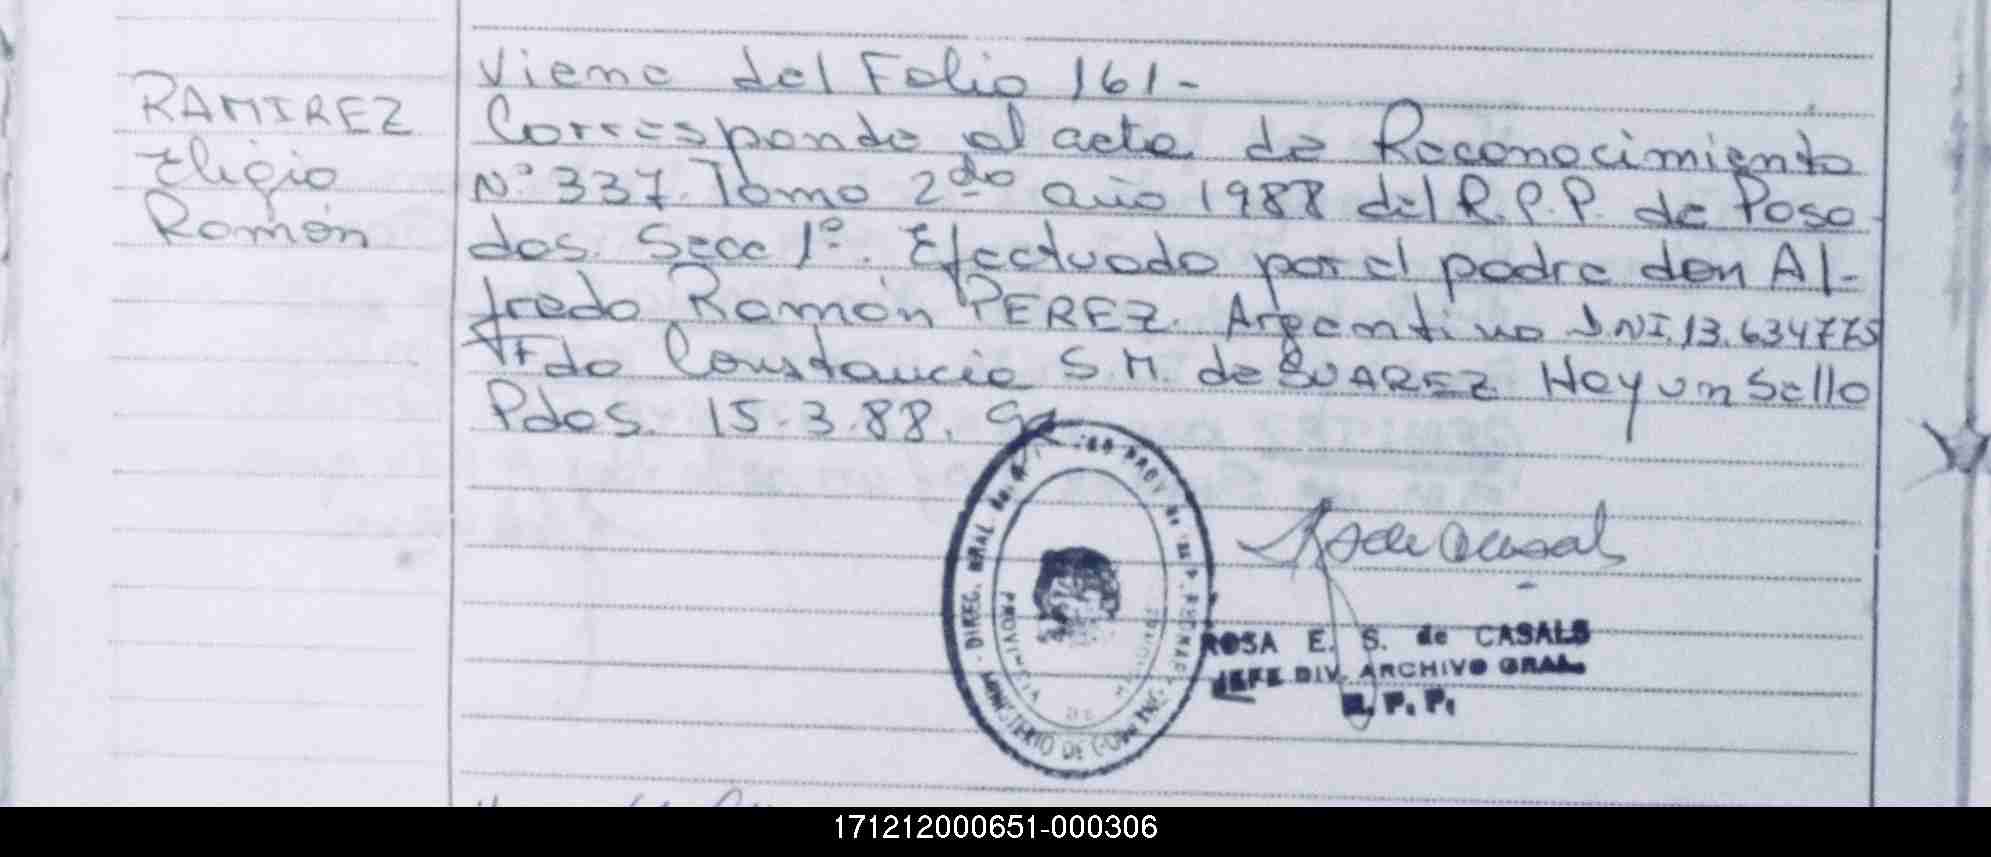 RAMIREZ
Eligio
Ramón
Viene del Folio 161-
Corresponde al acta de Reconocimiento
Nº 337. Tomo 2do año 1988 del R.P.P. de Posa-
das. Secc 1º. Efectuado por el padre don Al-
fredo Ramón PEREZ. Argentino DNI. 13.634775
Fdo Constancia S.M. de SUAREZ Hay un Sello
Pdas. 15.3.88.
DIREC. GRAL
MINISTERIO DE
ROSA E. S. de CASALS
JEFE DIV. ARCHIVO GRAL.
R. P. P.
171212000651-000306